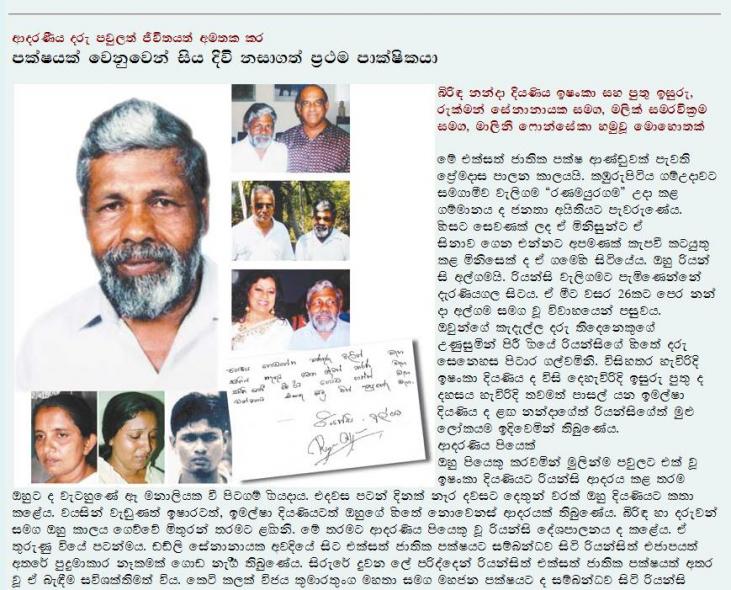 ආදරණීය දරු පවුලත් ජීවිතයත් අමතක කර
පක්ෂයක් වෙනුවෙන් සිය දිවි නසාගත් ප්‍රථම පාක්ෂිකයා
බිරිඳ නන්දා දියණිය ඉෂංකා සහ පුතු ඉසුරු,
රුක්මන් සේනානායක සමග, මලික් සමරවික්‍රම
සමග, මාලිනී ෆොන්සේකා හමුවූ මොහොතක්
මේ එක්සත් ජාතික පක්ෂ ආණ්ඩුවක් පැවති
ප්‍රේමදාස පාලන කාලයයි. කඹුරුපිටිය ගම්උදාවට
සමගාමීව වැලිගම "රණමයුරගම" උදා කළ
ගම්මානය ද ජනතා අයිතියට පැවරුණේය.
හිසට සෙවණක් ලද ඒ මිනිසුන්ට ඒ
සිනාව ගෙන එන්නට අපමණක් කැපවී කටයුතු
කළ මිනිසෙක් ද ඒ ගමෙහි සිටියේය. ඔහු රියන්
සි අල්ගමයි. රියන්සි වැලිගමට පැමිණෙන්නේ
දැරණියගල සිටය. ඒ මීට වසර 26කට පෙර නන්
දා අල්ගම සමග වූ විවාහයෙන් පසුවය.
ඔවුන්ගේ කැදැල්ල දරු තිදෙනෙකුගේ
උණුසුමින් පිරී ගියේ රියන්සිගේ හිතේ දරු
සෙනෙහස පිටාර ගල්වමිනි. විසිහතර හැවිරිදි
ඉෂංකා දියණිය ද විසි දෙහැවිරිදි ඉසුරු පුතු ද
දහසය හැවිරිදි තවමත් පාසල් යන ඉමල්ෂා
දියණිය ද ළඟ නන්දාගේත් රියන්සිගේත් මුළු
ලෝකයම ඉදිවෙමින් තිබුණේය.
ආදරණිය පියෙක්
ඔහු පියෙකු කරවමින් මුලින්ම පවුලට එක් වූ
ඉෂංකා දියණියට රියන්සි ආදරය කළ තරම
ඔහුට ද වැටහුණේ ඈ මනාලියක වී පිටගම් ගියදාය. එදවස පටන් දිනක් නෑර දවසට දෙතුන් වරක් ඔහු දියණියට කතා
කළේය. වයසින් වැඩුණත් ඉෂාරටත්, ඉමල්ෂා දියණියටත් ඔහුගේ හිතේ නොවෙනස් ආදරයක් තිබුණේය. බිරිඳ හා දරුවන්
සමග ඔහු කාලය ගෙව්වේ මිතුරන් තරමට ළඟිනි. මේ තරමට ආදරණිය පියෙකු වූ රියන්සි දේශපාලනය ද කළේය. ඒ
තුරුණු වියේ පටන්මය. ඩඩ්ලි සේනානායක අවදියේ සිට එක්සත් ජාතික පක්ෂයට සම්බන්ධව සිටි රියන්සිත් එජාපයත්
අතරේ පුදුමාකාර නෑකමක් ගොඩ නැගී තිබුණේය. සිරුරේ දුවන ලේ පරිද්දෙන් රියන්සිත් එක්සත් ජාතික පක්ෂයත් අතර
වූ ඒ බැඳීම සවිශක්තිමත් විය. කෙටි කලක් විජය කුමාරතුංග මහතා සමග මහජන පක්ෂයට ද සම්බන්ධව සිටි රියන්සි